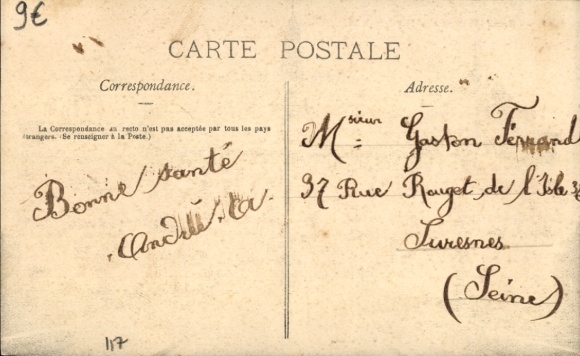 9€
CARTE POSTALE
Correspondance.
La Correspondance au recto n'est pas acceptée par tous les pays
étrangers. (Se renseigner à la Poste.)
Bonne santé
Adresse.
Msieur Gaston Ferrand
37 Rue Rouget de l'Isle 3
Suresnes
(Seine)
117